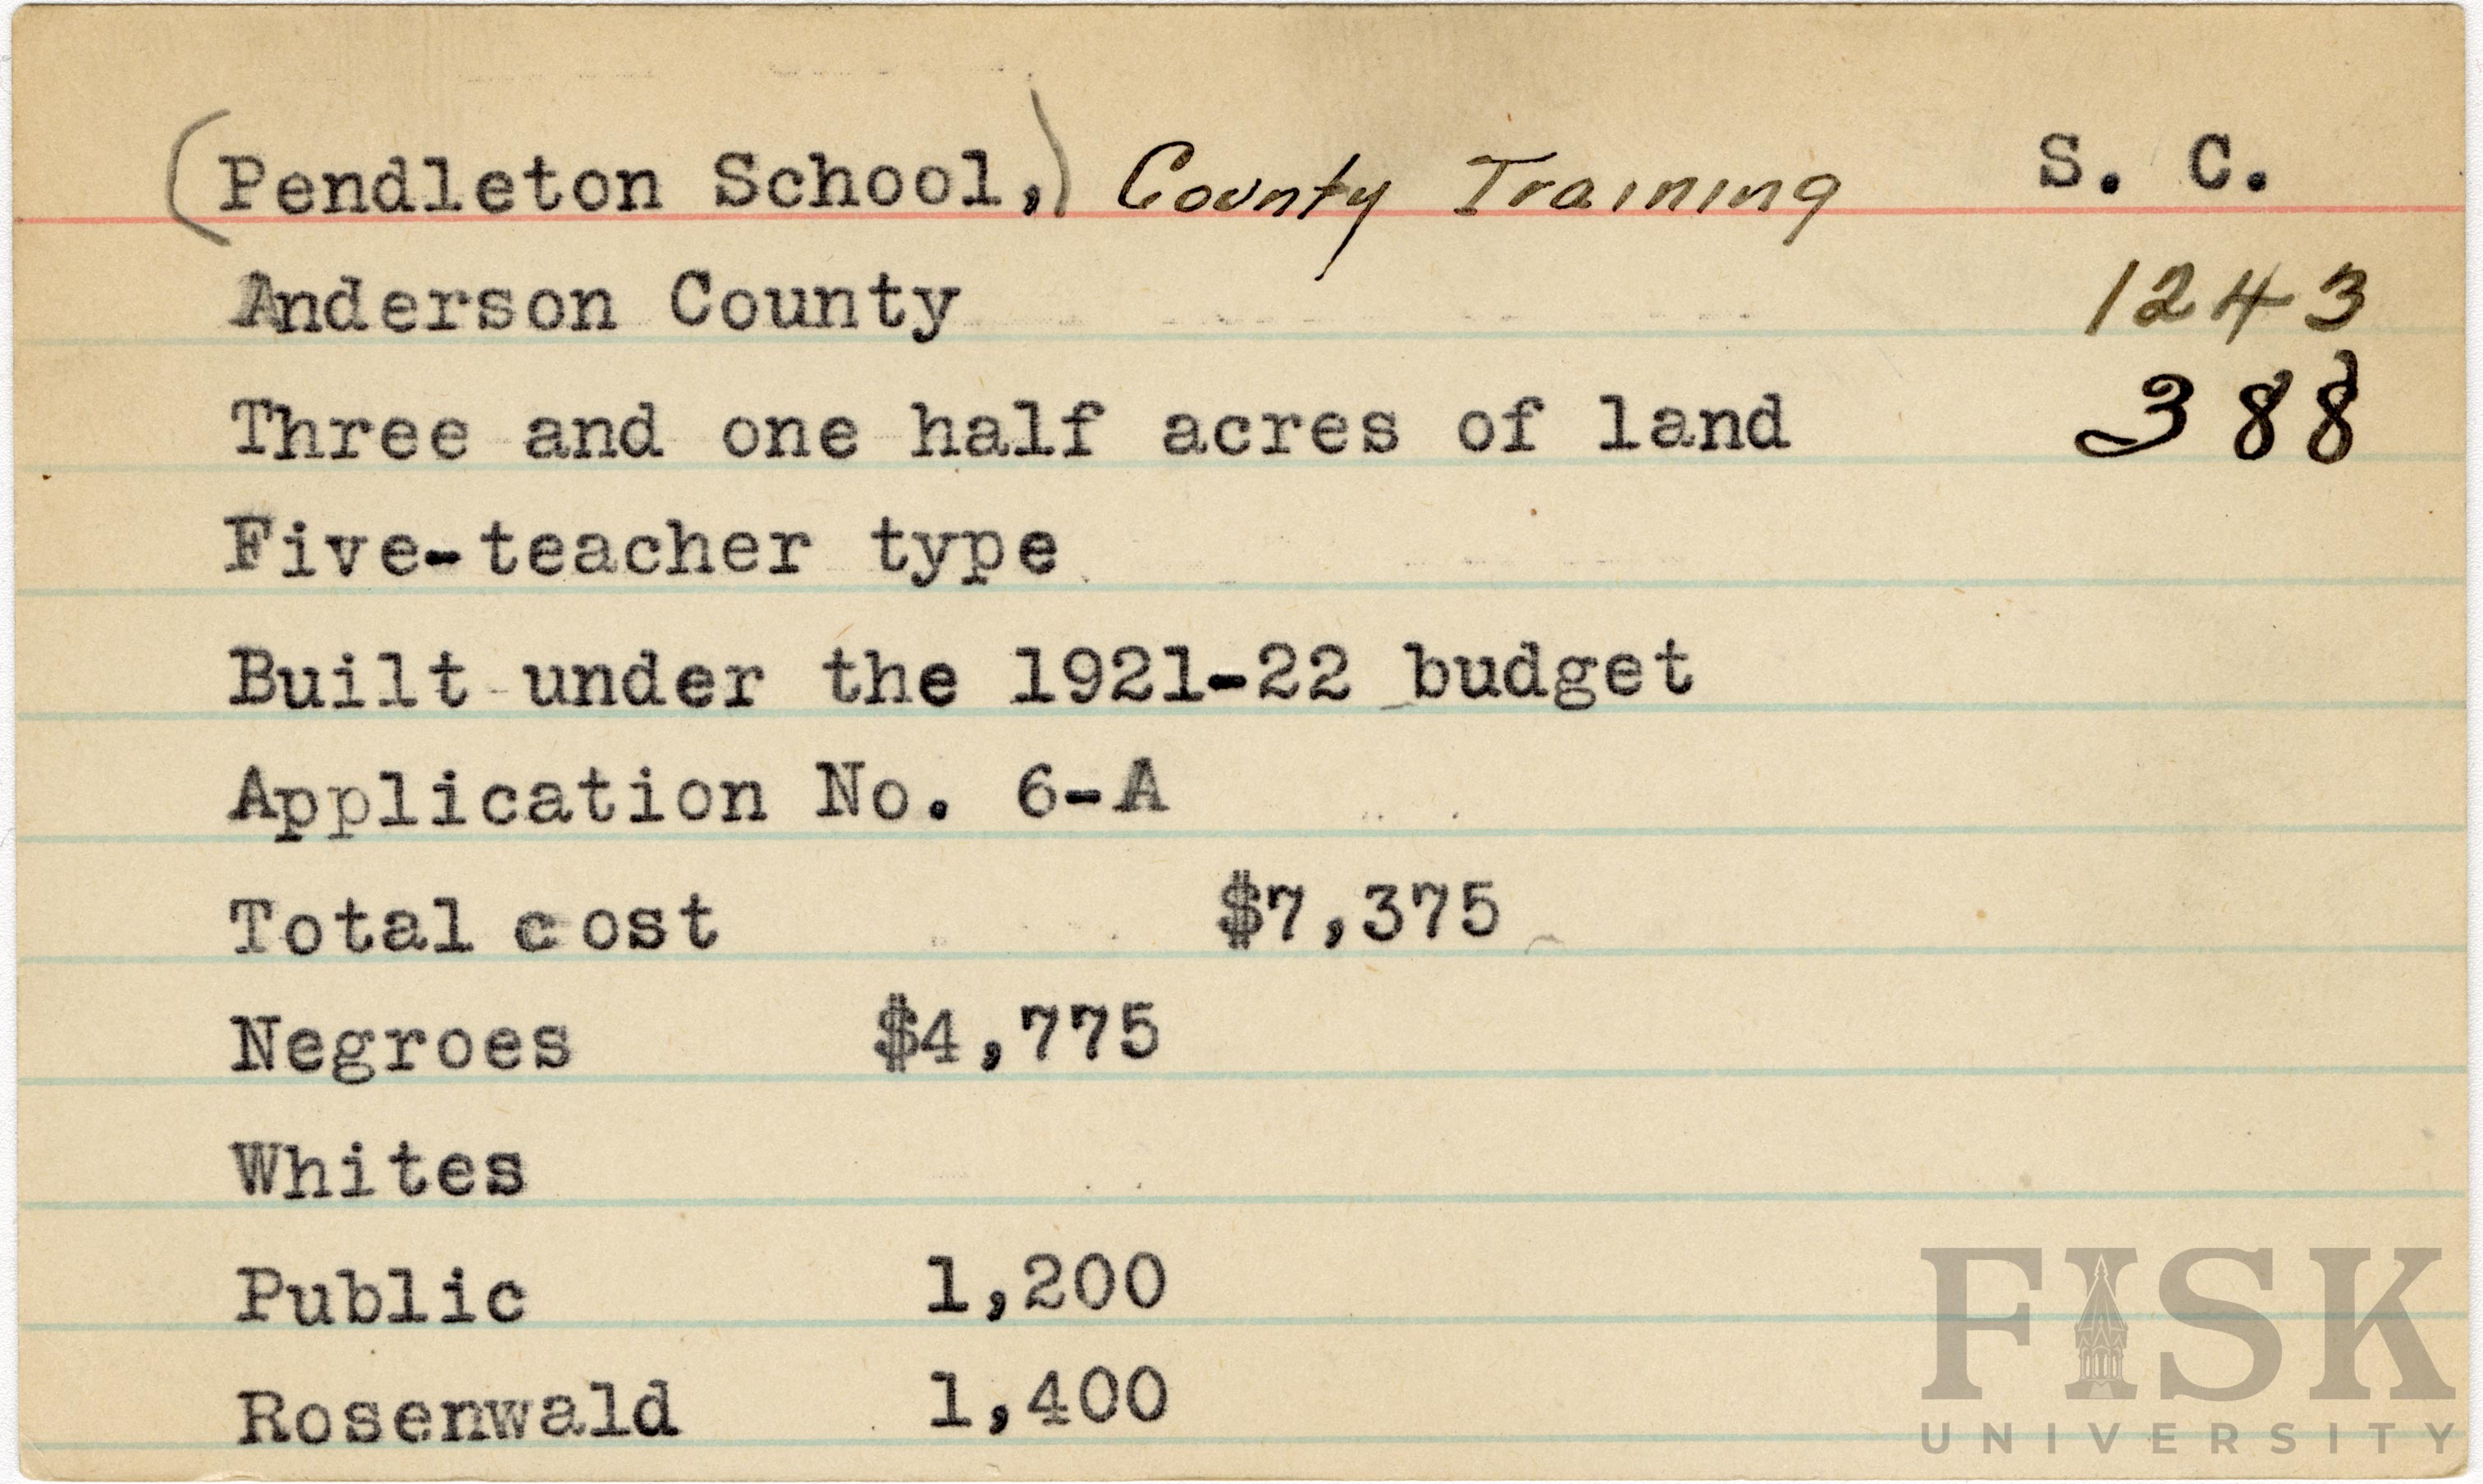 (Pendleton School,) County Training S. C.
Anderson County 1243
Three and one half acres of land 388
Five-teacher type
Built under the 1921-22 budget
Application No. 6-A
Total cost $7,375
Negroes $4,775
Whites
Public 1,200
Rosenwald 1,400
FISK
UNIVERSITY